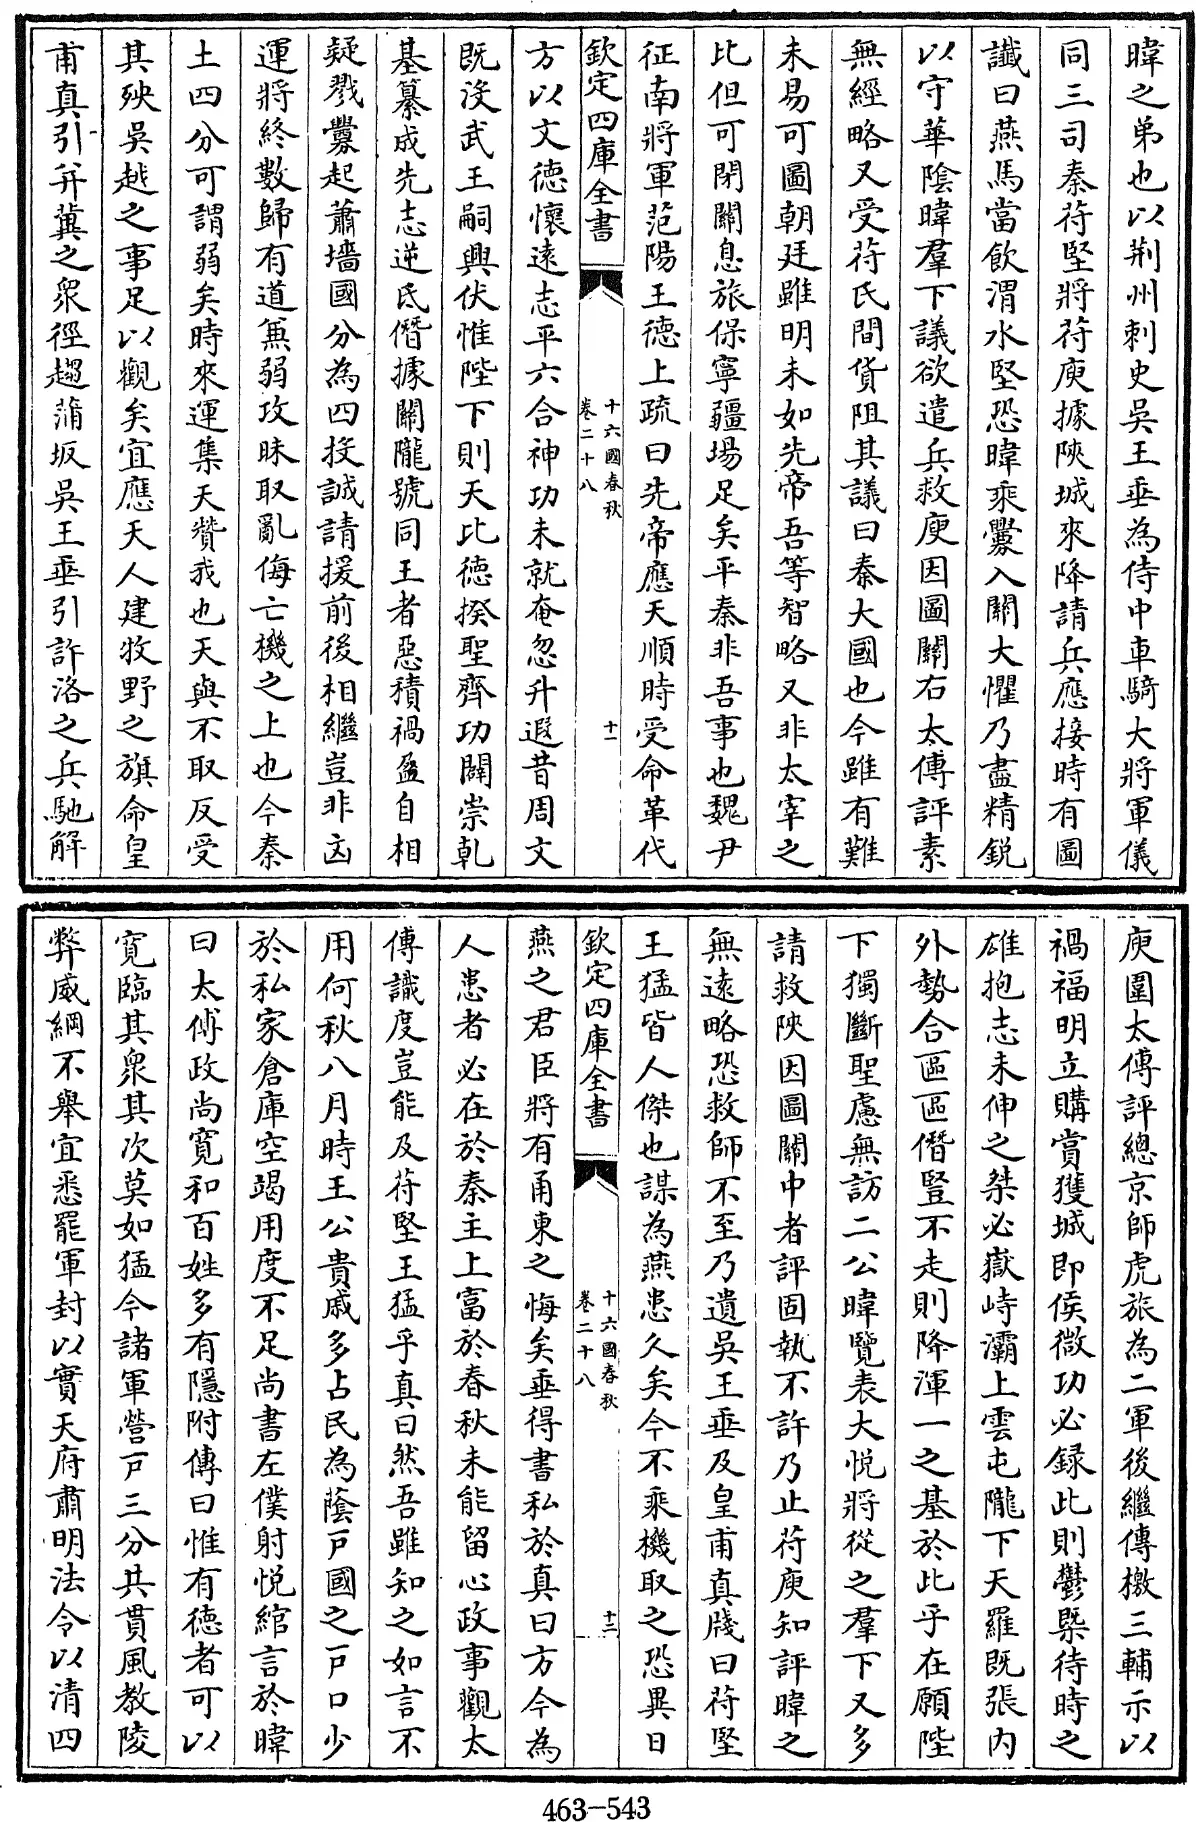 暐之弟也以荆州刺史吳王垂為侍中車騎大將軍儀
同三司秦苻堅將苻庾據陝城來降請兵應接時有圖
讖曰燕馬當飲渭水堅恐暐乘釁入關大懼乃盡精銳
以守華陰暐羣下議欲遣兵救庾因圖關右太傅評素
無經略又受苻氏間貨阻其議曰秦大國也今雖有難
未易可圖朝廷雖明未如先帝吾等智略又非太宰之
比但可閉關息旅保寧疆場足矣平秦非吾事也魏尹
征南將軍范陽王德上疏曰先帝應天順時受命革代
欽定四庫全書
十六國春秋
卷二十八
十一
方以文德懷遠志平六合神功未就奄忽升遐昔周文
既沒武王嗣興伏惟陛下則天比德揆聖齊功闢崇乹
基纂成先志逆氐僭據關隴號同王者惡積禍盈自相
疑戮釁起蕭墻國分為四投誠請援前後相繼豈非凶
運將終數歸有道兼弱攻昧取亂侮亡機之上也今秦
土四分可謂弱矣時來運集天贊我也天與不取反受
其殃吳越之事足以觀矣宜應天人建牧野之旗命皇
甫真引并冀之衆徑趨蒲坂吳王垂引許洛之兵馳解
庾圍太傅評總京師虎旅為二軍後繼傳檄三輔示以
禍福明立購賞獲城即侯微功必録此則鬱槩待時之
雄抱志未伸之桀必嶽峙灞上雲屯隴下天羅既張内
外勢合區區僭豎不走則降渾一之基於此乎在願陛
下獨斷聖慮無訪二公暐覽表大悦將從之羣下又多
請救陝因圖關中者評固執不許乃止苻庾知評暐之
無遠略恐救師不至乃遺吳王垂及皇甫真牋曰苻堅
王猛皆人傑也謀為燕患久矣今不乘機取之恐異日
欽定四庫全書
十六國春秋
卷二十八
十三
燕之君臣將有甬東之悔矣垂得書私於真曰方今為
人患者必在於秦主上富於春秋未能留心政事觀太
傅識度豈能及苻堅王猛乎真曰然吾雖知之如言不
用何秋八月時王公貴戚多占民為蔭户國之户口少
於私家倉庫空竭用度不足尚書左僕射悦綰言於暐
曰太傅政尚寛和百姓多有隱附傳曰惟有德者可以
寛臨其衆其次莫如猛今諸軍營户三分共貫風教陵
弊威綱不舉宜悉罷軍封以實天府肅明法令以清四
463-543